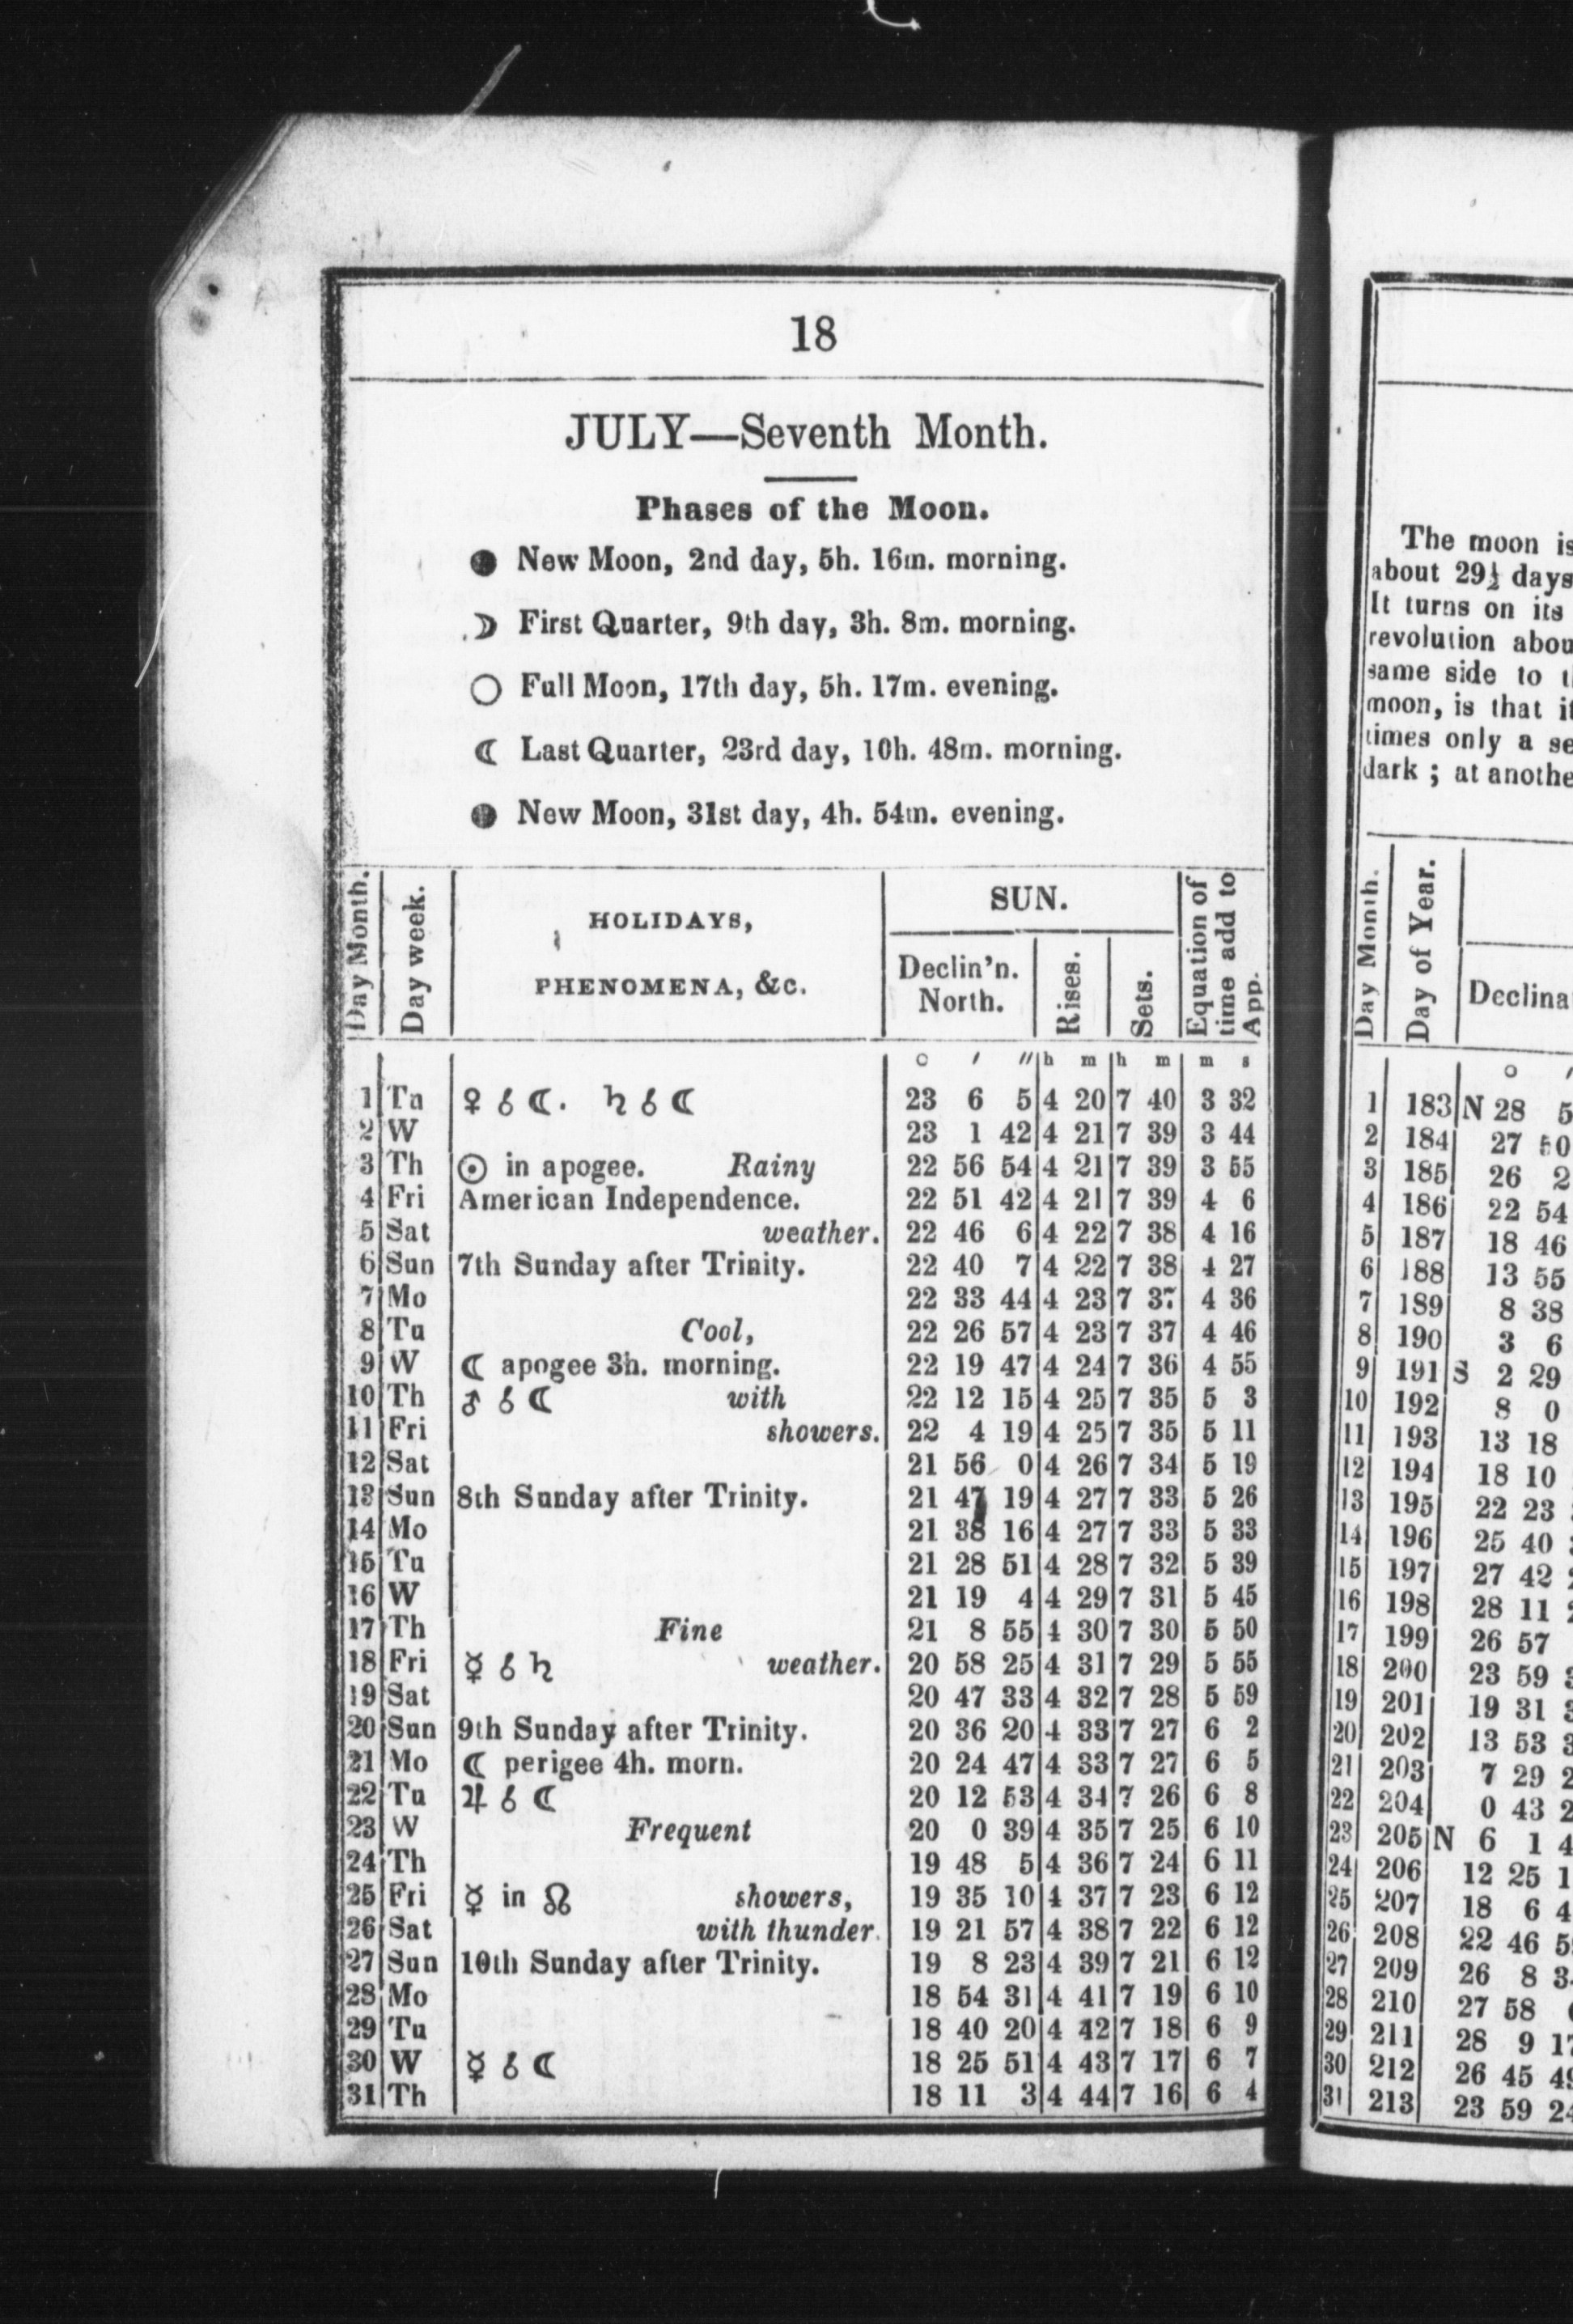 18
JULY—Seventh Month.
Phases of the Moon.
● New Moon, 2nd day, 5h. 16m. morning.
☽ First Quarter, 9th day, 3h. 8m. morning.
○ Full Moon, 17th day, 5h. 17m. evening.
☾ Last Quarter, 23rd day, 10h. 48m. morning.
● New Moon, 31st day, 4h. 54m. evening.
Day Month. Day week. HOLIDAYS, PHENOMENA, &c. SUN. Declin'n. North. Rises. Sets. Equation of time add to App.
○ ′ ″ h m h m m s
1 Tu ♀ ☌ ☾. ♄ ☌ ☾ 23 6 5 4 20 7 40 3 32
2 W 23 1 42 4 21 7 39 3 44
3 Th ☉ in apogee. Rainy 22 56 54 4 21 7 39 3 55
4 Fri American Independence. 22 51 42 4 21 7 39 4 6
5 Sat weather. 22 46 6 4 22 7 38 4 16
6 Sun 7th Sunday after Trinity. 22 40 7 4 22 7 38 4 27
7 Mo 22 33 44 4 23 7 37 4 36
8 Tu Cool, 22 26 57 4 23 7 37 4 46
9 W ☾ apogee 3h. morning. 22 19 47 4 24 7 36 4 55
10 Th ♂ ☌ ☾ with 22 12 15 4 25 7 35 5 3
11 Fri showers. 22 4 19 4 25 7 35 5 11
12 Sat 21 56 0 4 26 7 34 5 19
13 Sun 8th Sunday after Trinity. 21 47 19 4 27 7 33 5 26
14 Mo 21 38 16 4 27 7 33 5 33
15 Tu 21 28 51 4 28 7 32 5 39
16 W 21 19 4 4 29 7 31 5 45
17 Th Fine 21 8 55 4 30 7 30 5 50
18 Fri ☿ ☌ ♄ weather. 20 58 25 4 31 7 29 5 55
19 Sat 20 47 33 4 32 7 28 5 59
20 Sun 9th Sunday after Trinity. 20 36 20 4 33 7 27 6 2
21 Mo ☾ perigee 4h. morn. 20 24 47 4 33 7 27 6 5
22 Tu ♃ ☌ ☾ 20 12 53 4 34 7 26 6 8
23 W Frequent 20 0 39 4 35 7 25 6 10
24 Th 19 48 5 4 36 7 24 6 11
25 Fri ☿ in ☊ showers, 19 35 10 4 37 7 23 6 12
26 Sat with thunder. 19 21 57 4 38 7 22 6 12
27 Sun 10th Sunday after Trinity. 19 8 23 4 39 7 21 6 12
28 Mo 18 54 31 4 41 7 19 6 10
29 Tu 18 40 20 4 42 7 18 6 9
30 W ☿ ☌ ☾ 18 25 51 4 43 7 17 6 7
31 Th 18 11 3 4 44 7 16 6 4
The moon is
about 29½ days
It turns on its
revolution abou
same side to t
moon, is that it
times only a se
dark ; at anothe
Day Month. Day of Year. Declina
○ ′
1 183 N 28 5
2 184 27 50
3 185 26 2
4 186 22 54
5 187 18 46
6 188 13 55
7 189 8 38
8 190 3 6
9 191 S 2 29
10 192 8 0
11 193 13 18
12 194 18 10
13 195 22 23
14 196 25 40
15 197 27 42
16 198 28 11
17 199 26 57
18 200 23 59
19 201 19 31
20 202 13 53
21 203 7 29
22 204 0 43
23 205 N 6 1
24 206 12 25
25 207 18 6
26 208 22 46
27 209 26 8
28 210 27 58
29 211 28 9 17
30 212 26 45 49
31 213 23 59 24